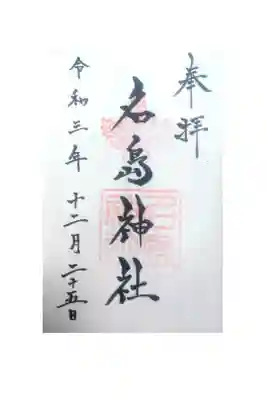 奉拝
名島神社
令和三年十二月二十五日